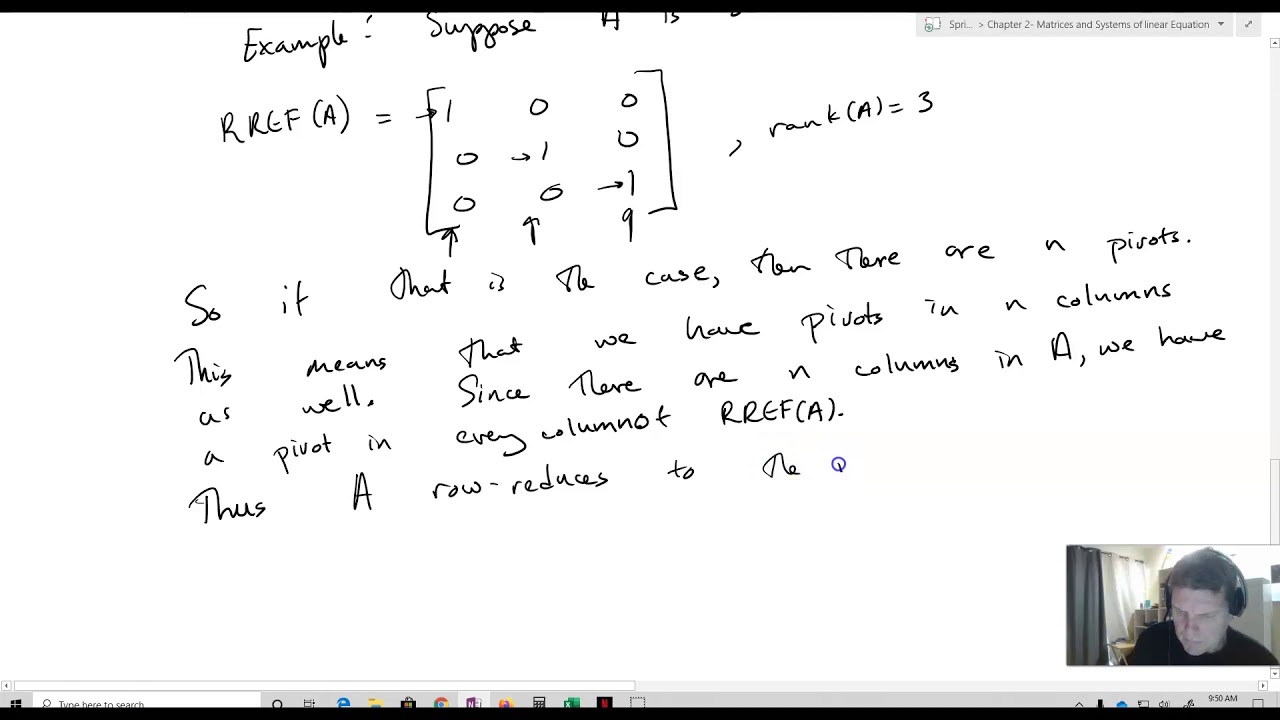 Spri... > Chapter 2- Matrices and Systems of linear Equation
Example: Suppose A is
RREF(A) = [ →1 0 0
0 →1 0
0 0 →1 ] , rank(A)=3
So if that is the case, then there are n pivots.
This means that we have pivots in n columns
as well. Since there are n columns in A, we have
a pivot in every column of RREF(A).
Thus A row-reduces to the
Type here to search
9:50 AM